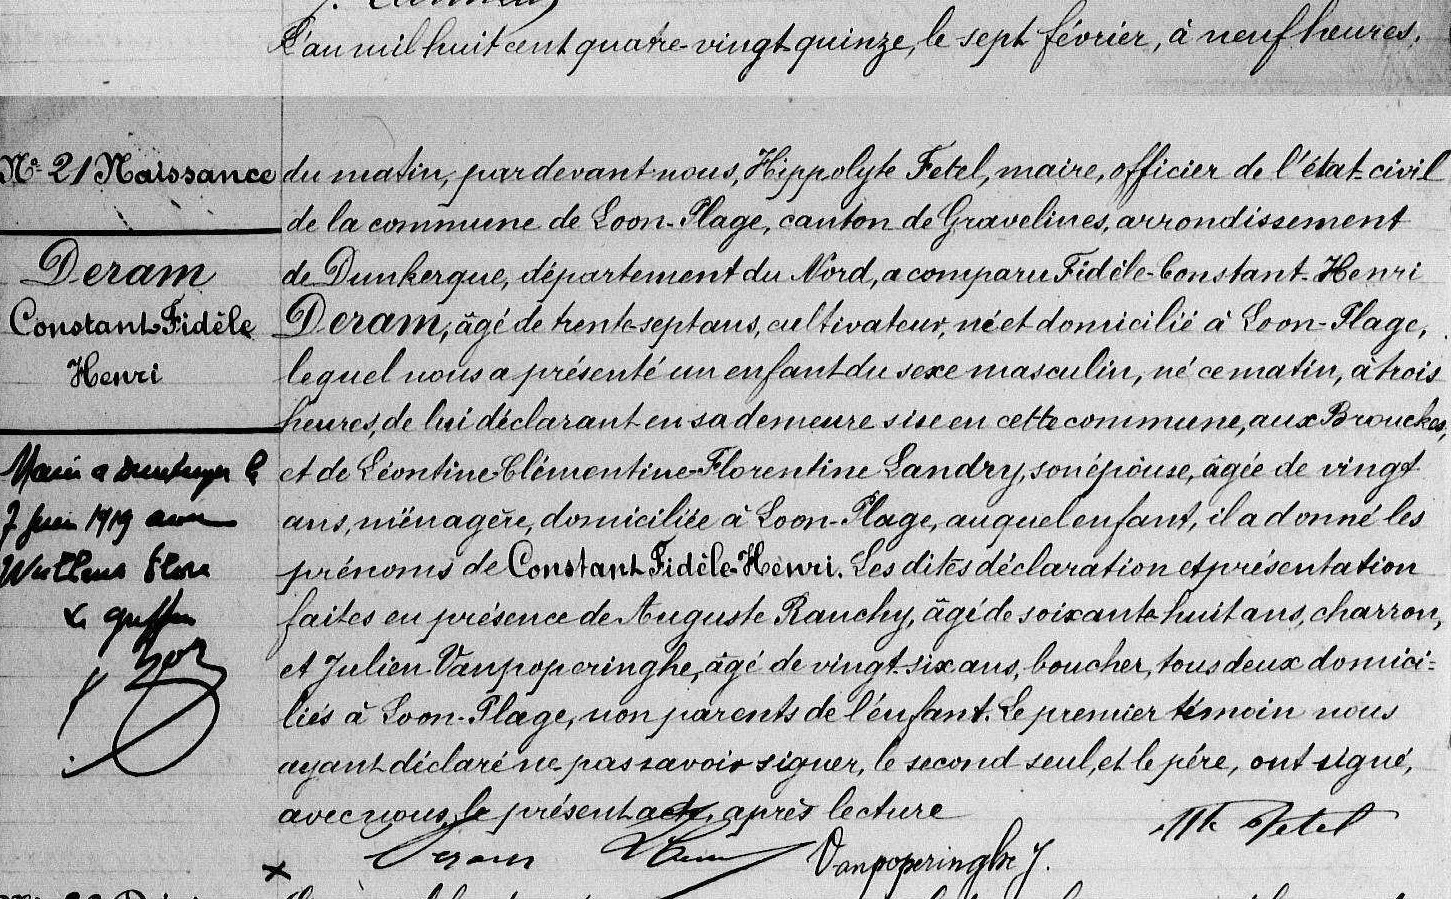 L'an mil huit cent quatre-vingt quinze, le sept février, à neuf heures.
Nº 21 Naissance
Deram
Constant Fidèle
Henri
7 juin 1919
Le greffier
du matin, par devant nous, Hippolyte Fetel, maire, officier de l'état-civil
de la commune de Loon-Plage, canton de Gravelines, arrondissement
de Dunkerque, département du Nord, a comparu Fidèle-Constant-Henri
Deram, âgé de trente-sept ans, cultivateur, né et domicilié à Loon-Plage,
lequel nous a présenté un enfant du sexe masculin, né ce matin, à trois
heures, de lui déclarant en sa demeure sise en cette commune, aux Brouckes,
et de Léontine-Clémentine-Florentine Landry, son épouse, âgée de vingt
ans, ménagère, domiciliée à Loon-Plage, auquel enfant, il a donné les
prénoms de Constant Fidèle-Henri. Les dites déclaration et présentation
faites en présence de Auguste Rauchy, âgé de soixante-huit ans, charron,
et Julien Vanpoperinghe, âgé de vingt-six ans, boucher, tous deux domici=
liés à Loon-Plage, non parents de l'enfant. Le premier témoin nous
ayant déclaré ne pas savoir signer, le second seul, et le père, ont signé,
avec nous, le présent acte, après lecture
Deram Vanpoperinghe J. Hte Fetel